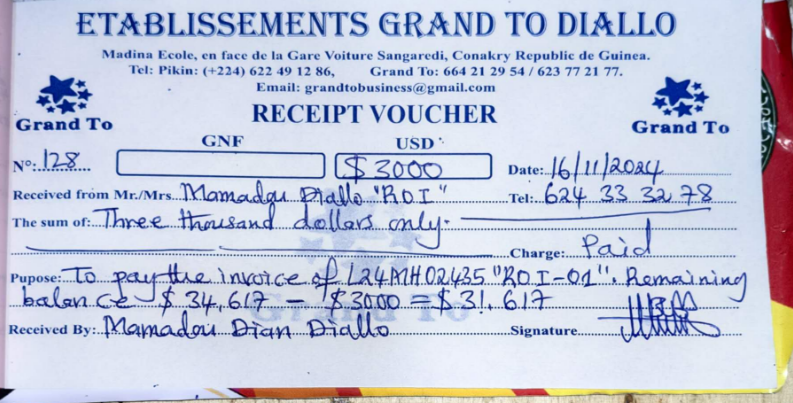 ETABLISSEMENTS GRAND TO DIALLO
Madina Ecole, en face de la Gare Voiture Sangaredi, Conakry Republic de Guinea.
Tel: Pikin: (+224) 622 49 12 86, Grand To: 664 21 29 54 / 623 77 21 77.
Email: grandtobusiness@gmail.com
RECEIPT VOUCHER
Grand To
Grand To
GNF USD
Nº: 128 $3000 Date: 16/11/2024
Received from Mr./Mrs. Mamadou Diallo "ROI" Tel: 624 33 32 78
The sum of: Three thousand dollars only.
Charge: Paid
Pupose: To pay the invoice of L24MH02435 "ROI-01". Remaining
balance $34,617 - $3000 = $31.617
Grand To
Received By: Mamadou Dian Diallo Signature